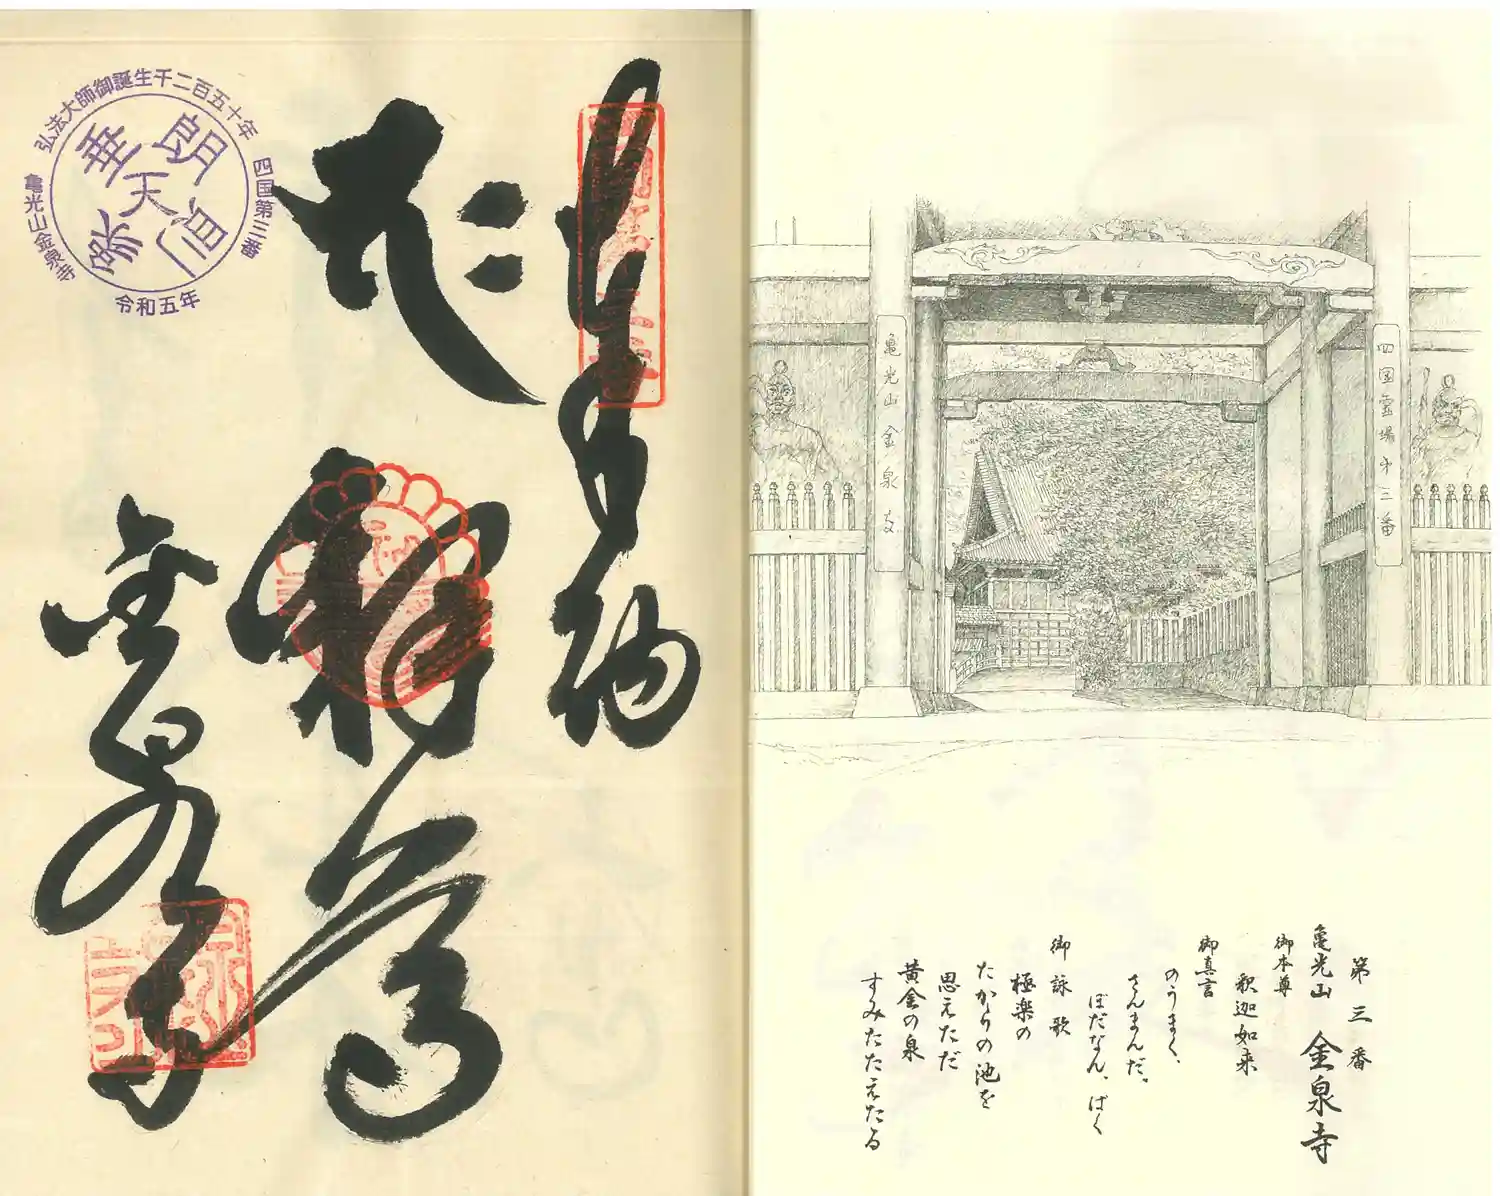 第三番
亀光山 金泉寺
御本尊
釈迦如来
御真言
のうまく、
さんまんだ。
ぼだなん、ばく
御詠歌
極楽の
たからの池を
思えただ
黄金の泉
すみたたえたる
四国霊場第三番
亀光山金泉寺
奉納
釈迦
金泉寺
弘法大師御誕生千二百五十年
四国第三番
亀光山金泉寺
令和五年